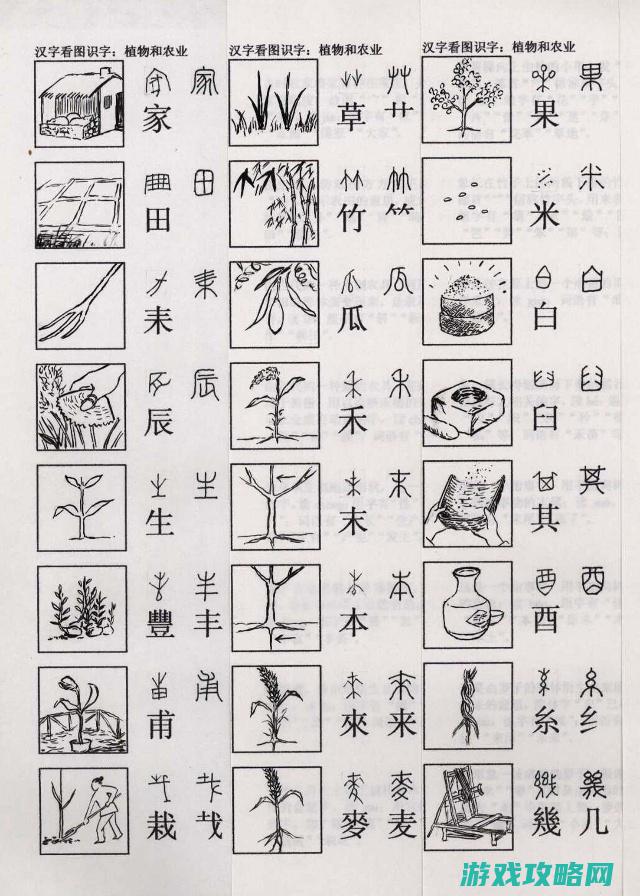 汉字看图识字：植物和农业
家
田
耒
辰
生
豐 丰
甫
栽
汉字看图识字：植物和农业
草 艹
竹 ⺮
瓜
禾
末
本
來 来
麥 麦
汉字看图识字：植物和农业
果
米
白
臼
其
酉
糸 纟
幾 几
游戏攻略网